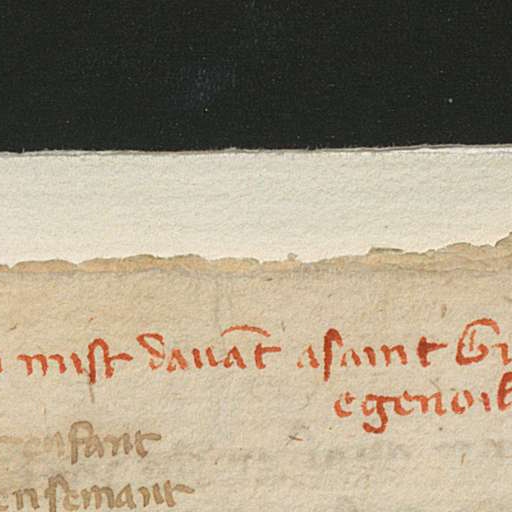 mist dauāt asaint
egenoil
enfant
ensemant